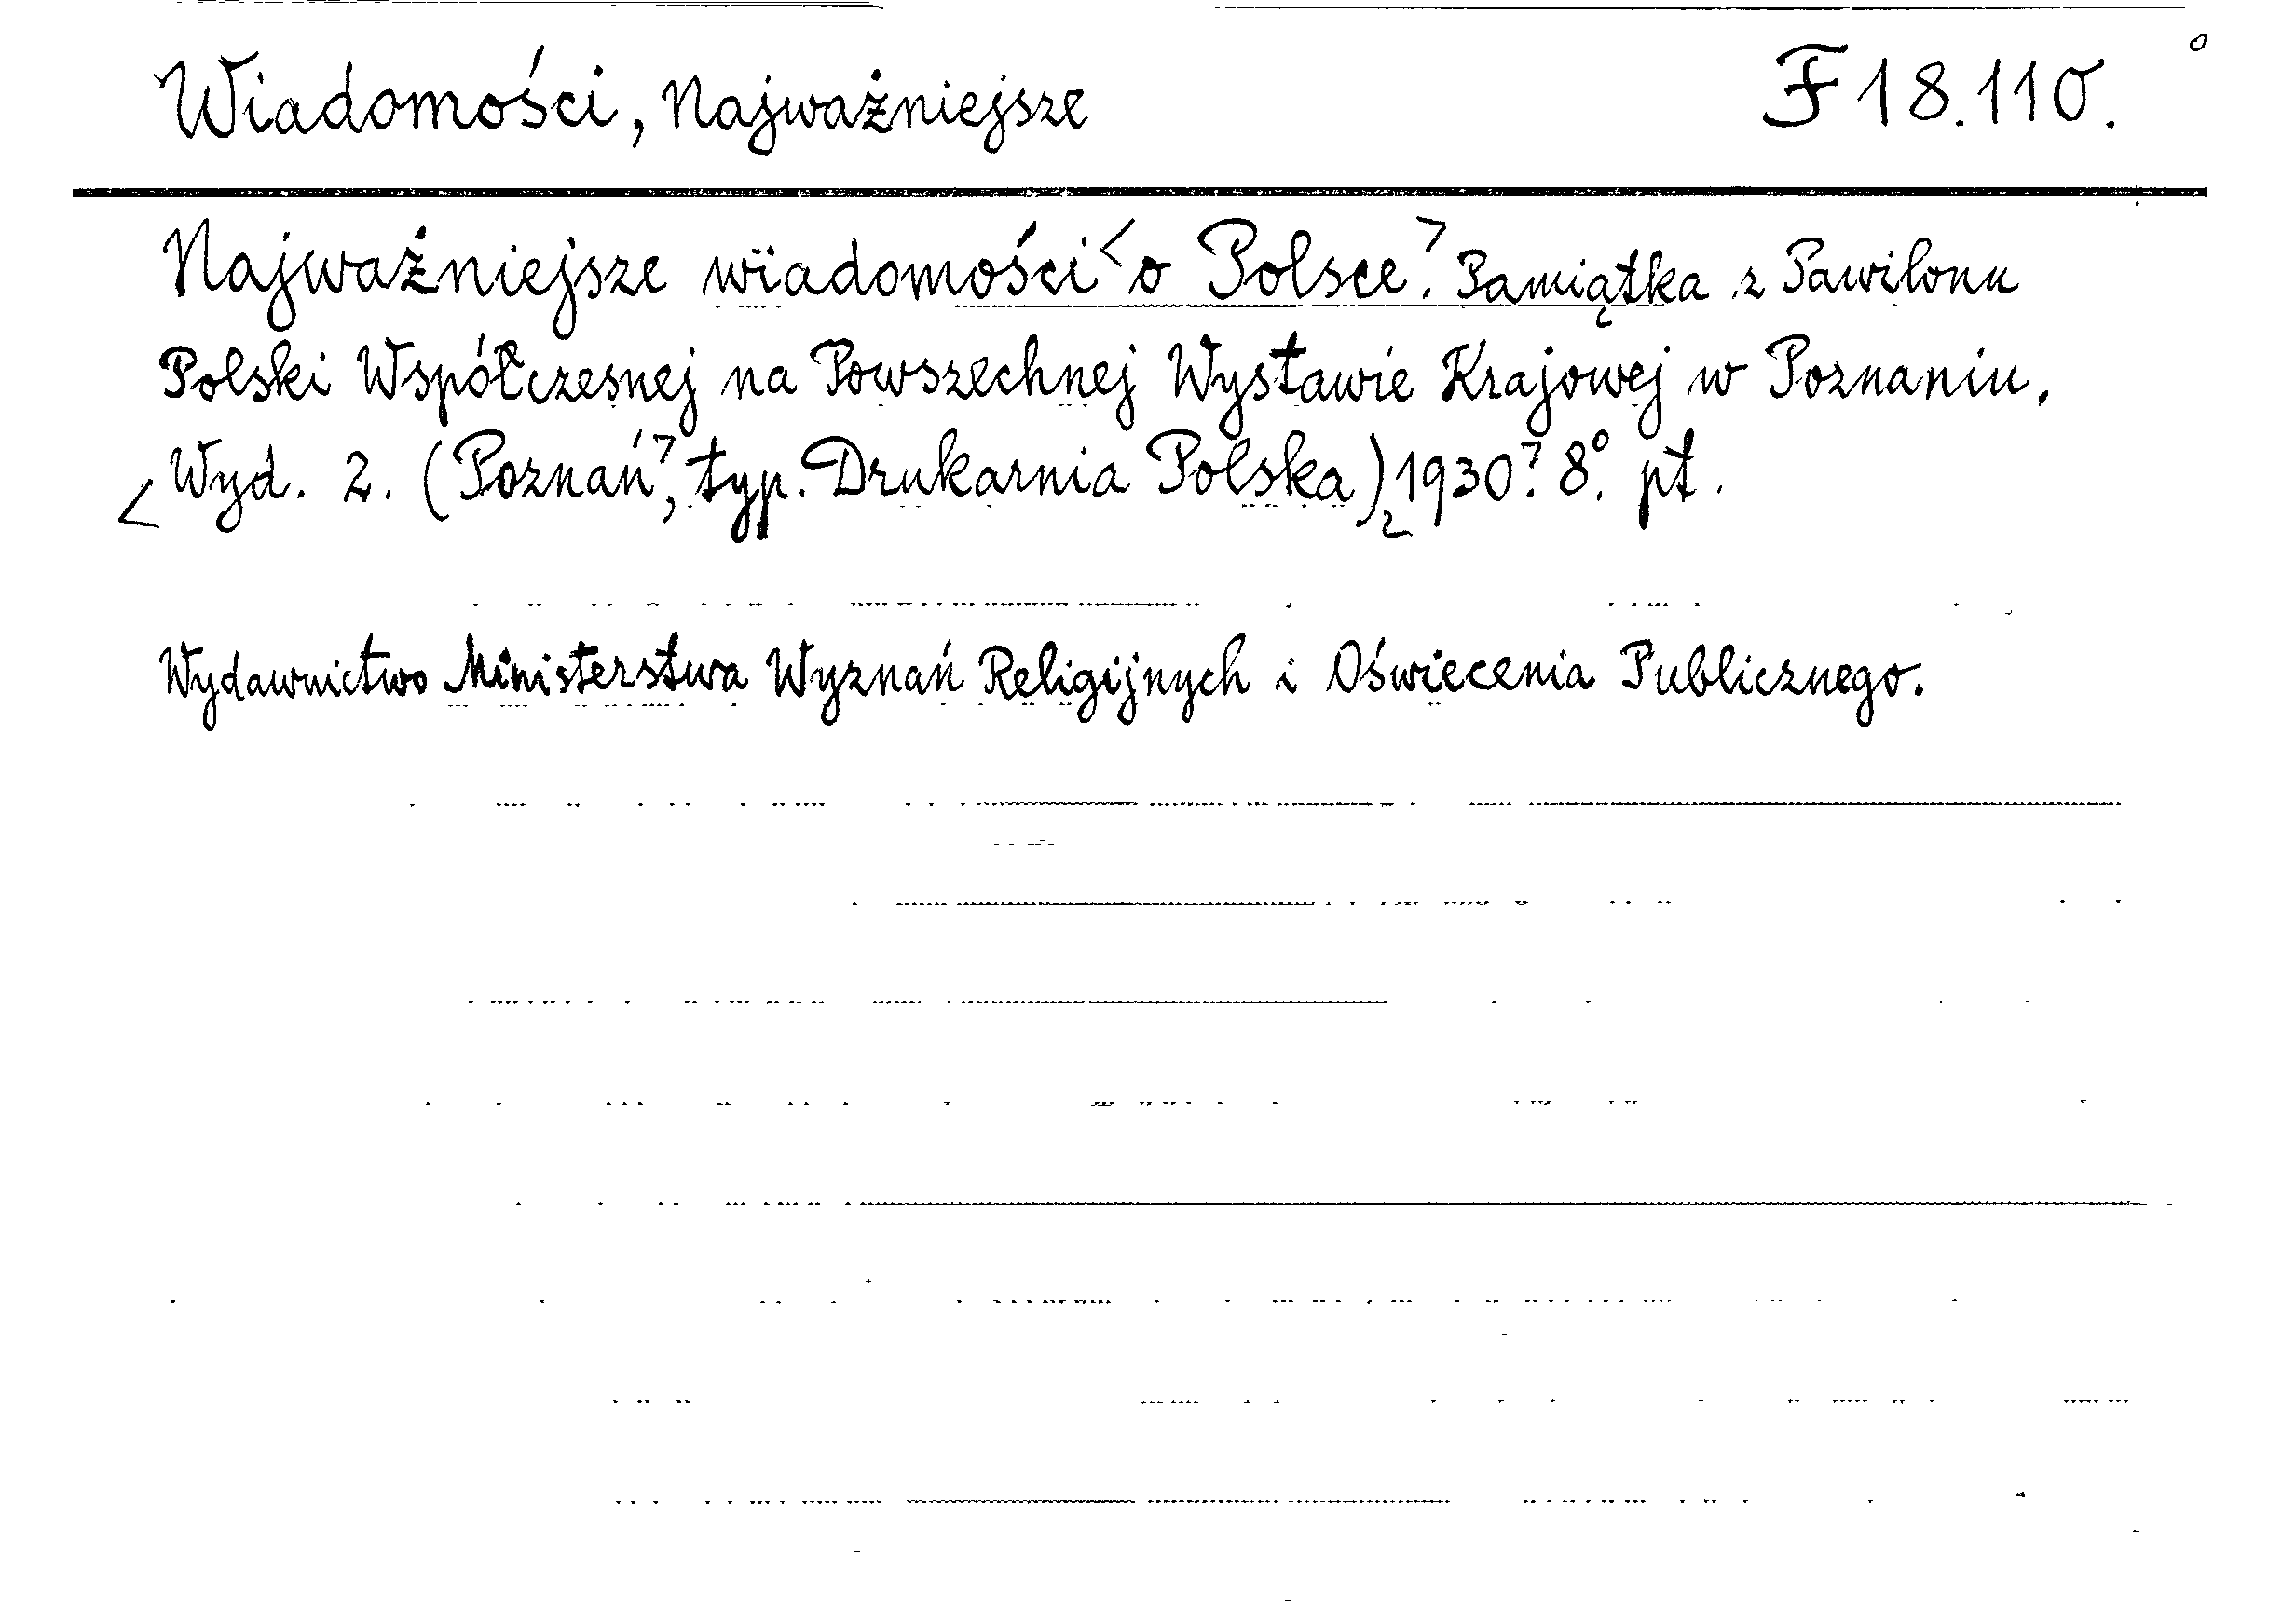 Wiadomości, Najważniejsze F 18.110.
Najważniejsze wiadomości <o Polsce>. Pamiątka z Pawilonu
Polski Współczesnej na Powszechnej Wystawie Krajowej w Poznaniu.
<Wyd. 2. (Poznań>, typ. Drukarnia Polska) 1930? 8°. pł.
Wydawnictwo Ministerstwa Wyznań Religijnych i Oświecenia Publicznego.